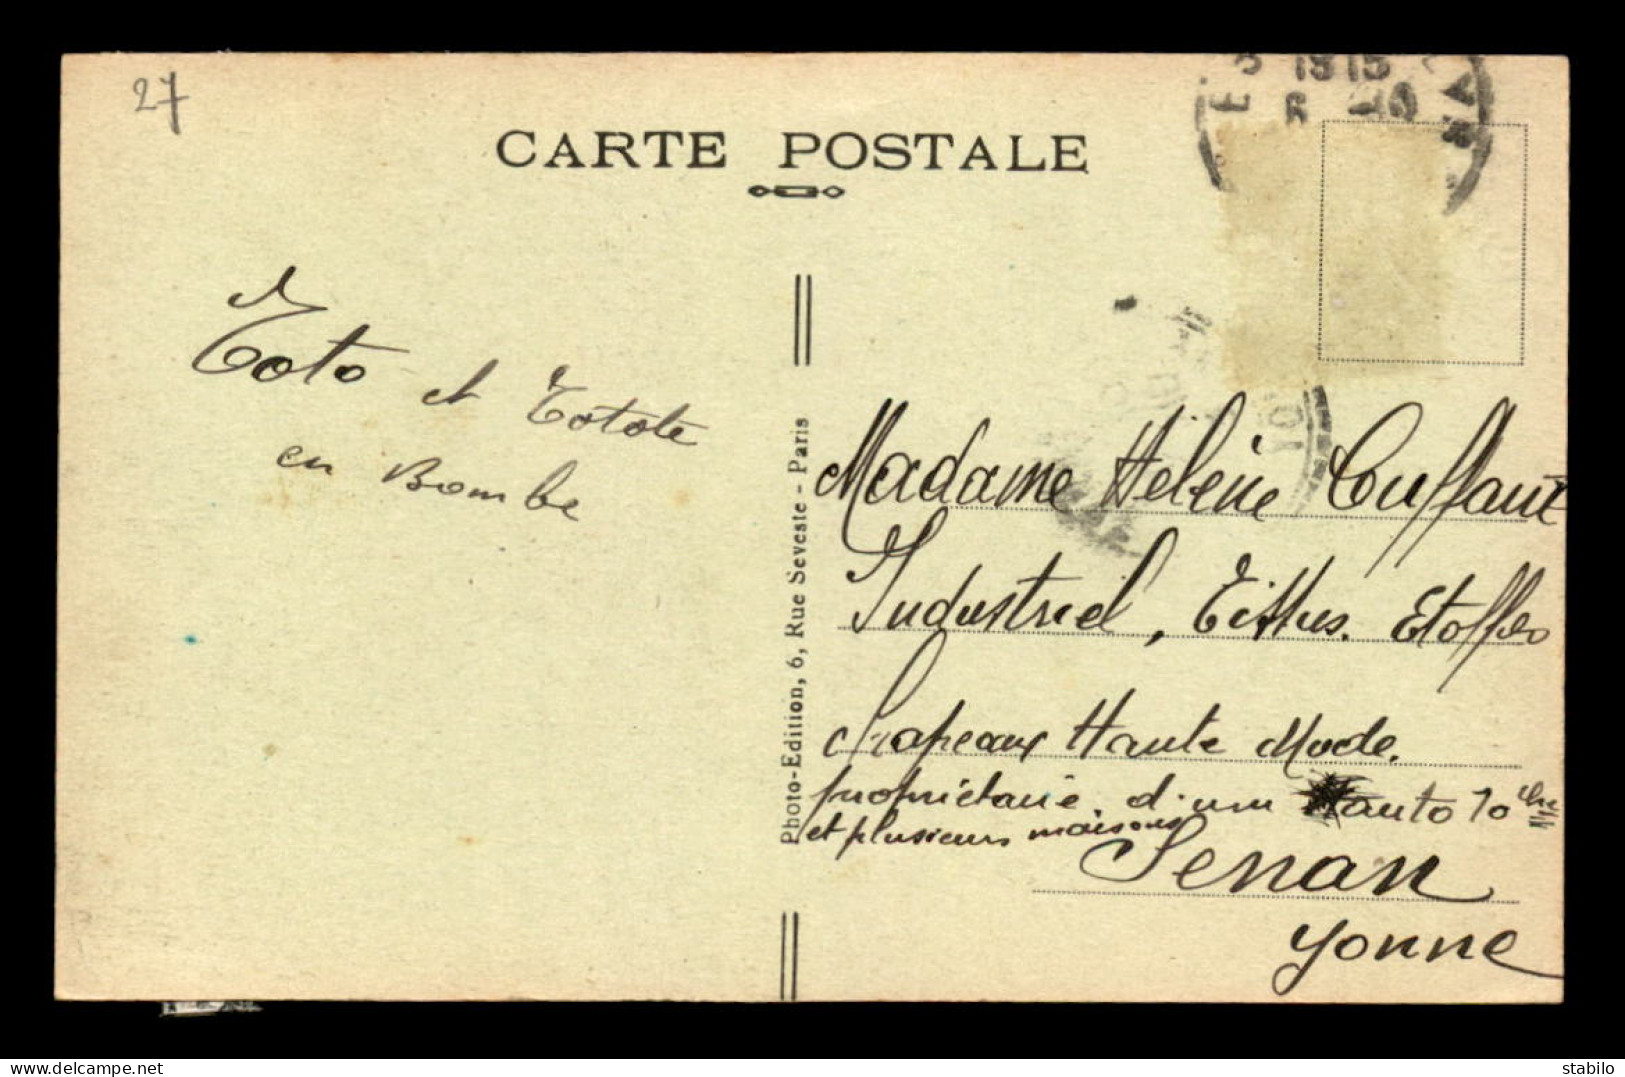 27
CARTE POSTALE
1915
Toto et Totote
en Bombe
Photo-Edition, 6, Rue Seveste - Paris
Madame Hélène Cuffaut
Industriel, Tissus. Etoffes
Chapeaux Haute Mode.
propriétaire d'un auto 10 chx
et plusieurs maisons
Senan
Yonne
delcampe.net
stabilo